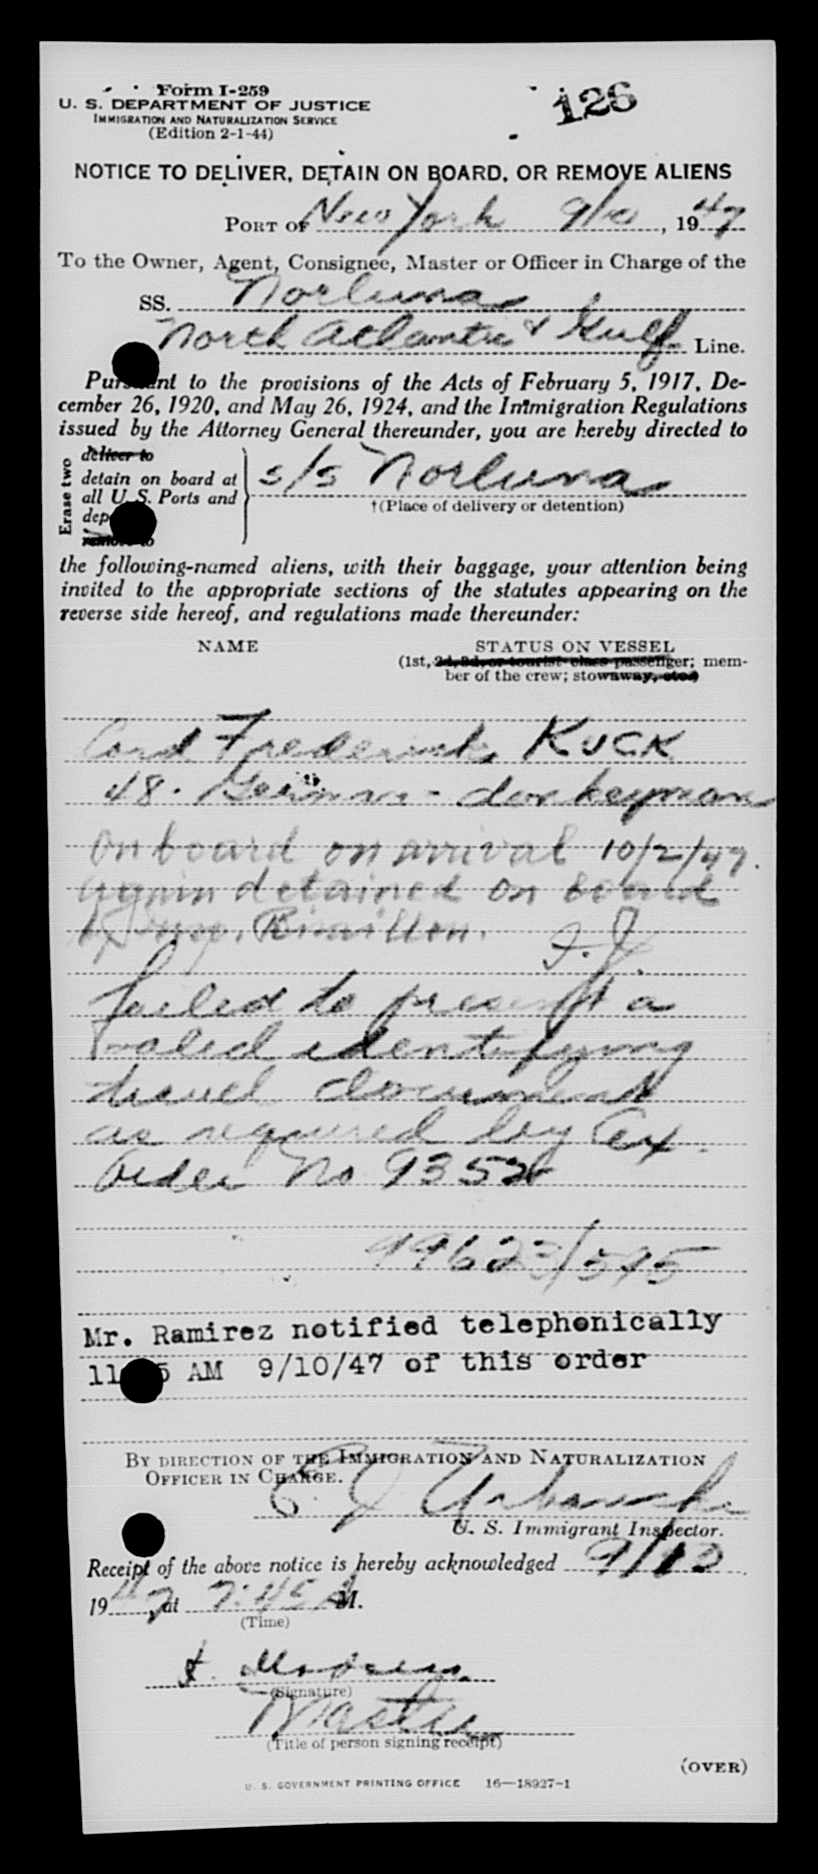 Form I-259
126
U. S. DEPARTMENT OF JUSTICE
IMMIGRATION AND NATURALIZATION SERVICE
(Edition 2-1-44)
NOTICE TO DELIVER, DETAIN ON BOARD, OR REMOVE ALIENS
PORT OF New York 9/10, 1947
To the Owner, Agent, Consignee, Master or Officer in Charge of the
SS. Norluna
North Atlantic & Gulf Line.
Pursuant to the provisions of the Acts of February 5, 1917, De-
cember 26, 1920, and May 26, 1924, and the Immigration Regulations
issued by the Attorney General thereunder, you are hereby directed to
Erase two
deliver to
detain on board at
all U. S. Ports and
dep
remove to
s/s Norluna
†(Place of delivery or detention)
the following-named aliens, with their baggage, your attention being
invited to the appropriate sections of the statutes appearing on the
reverse side hereof, and regulations made thereunder:
NAME STATUS ON VESSEL
(1st, 2d, 3d, or tourist class passenger; mem-
ber of the crew; stowaway, etc.)
Cord Frederick KUCK
48. German - donkeyman
On board on arrival 10/2/47.
again detained on board
by Insp.
failed to present a
valid identifying
travel document
as required by Ex.
Order No 9352
99623/595
Mr. Ramirez notified telephonically
11 5 AM 9/10/47 of this order
BY DIRECTION OF THE IMMIGRATION AND NATURALIZATION
OFFICER IN CHARGE.
U. S. Immigrant Inspector.
Receipt of the above notice is hereby acknowledged 9/10
1947, at 7:45 A M.
(Time)
(Signature)
Master
(Title of person signing receipt)
(OVER)
U. S. GOVERNMENT PRINTING OFFICE 16—18927-1